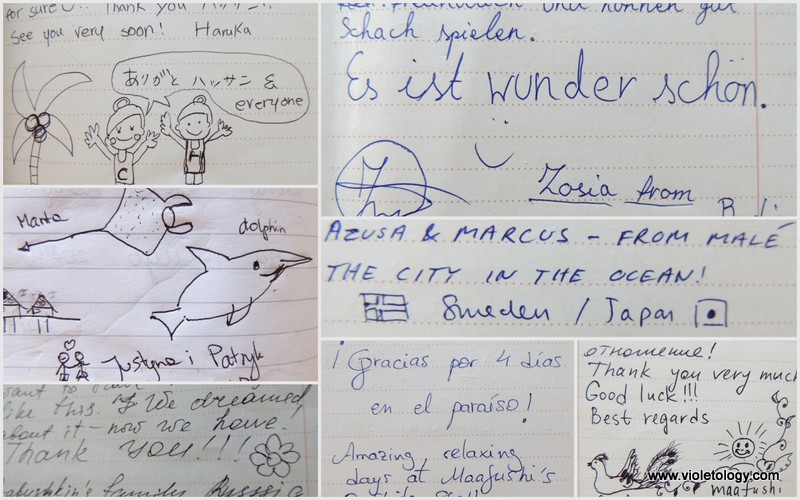 for sure Thank you
see you very soon! Haruka
ありがと ハッサン &
everyone
C
H
freundlich und können gut
Schach spielen.
Es ist wunder schön.
Zosia from
Manta
dolphin
Justyna i Patryk
AZUSA & MARCUS - FROM MALÉ
THE CITY IN THE OCEAN!
Sweden / Japan
want to
like this. We dreamed
about it - now we have.
Thank you!!!
family Russia
¡Gracias por 4 días
en el paraíso!
Amazing, relaxing
days at Maafushi's
отношение!
Thank you very much
Good luck!!!
Best regards
maafushi
www.violetology.com